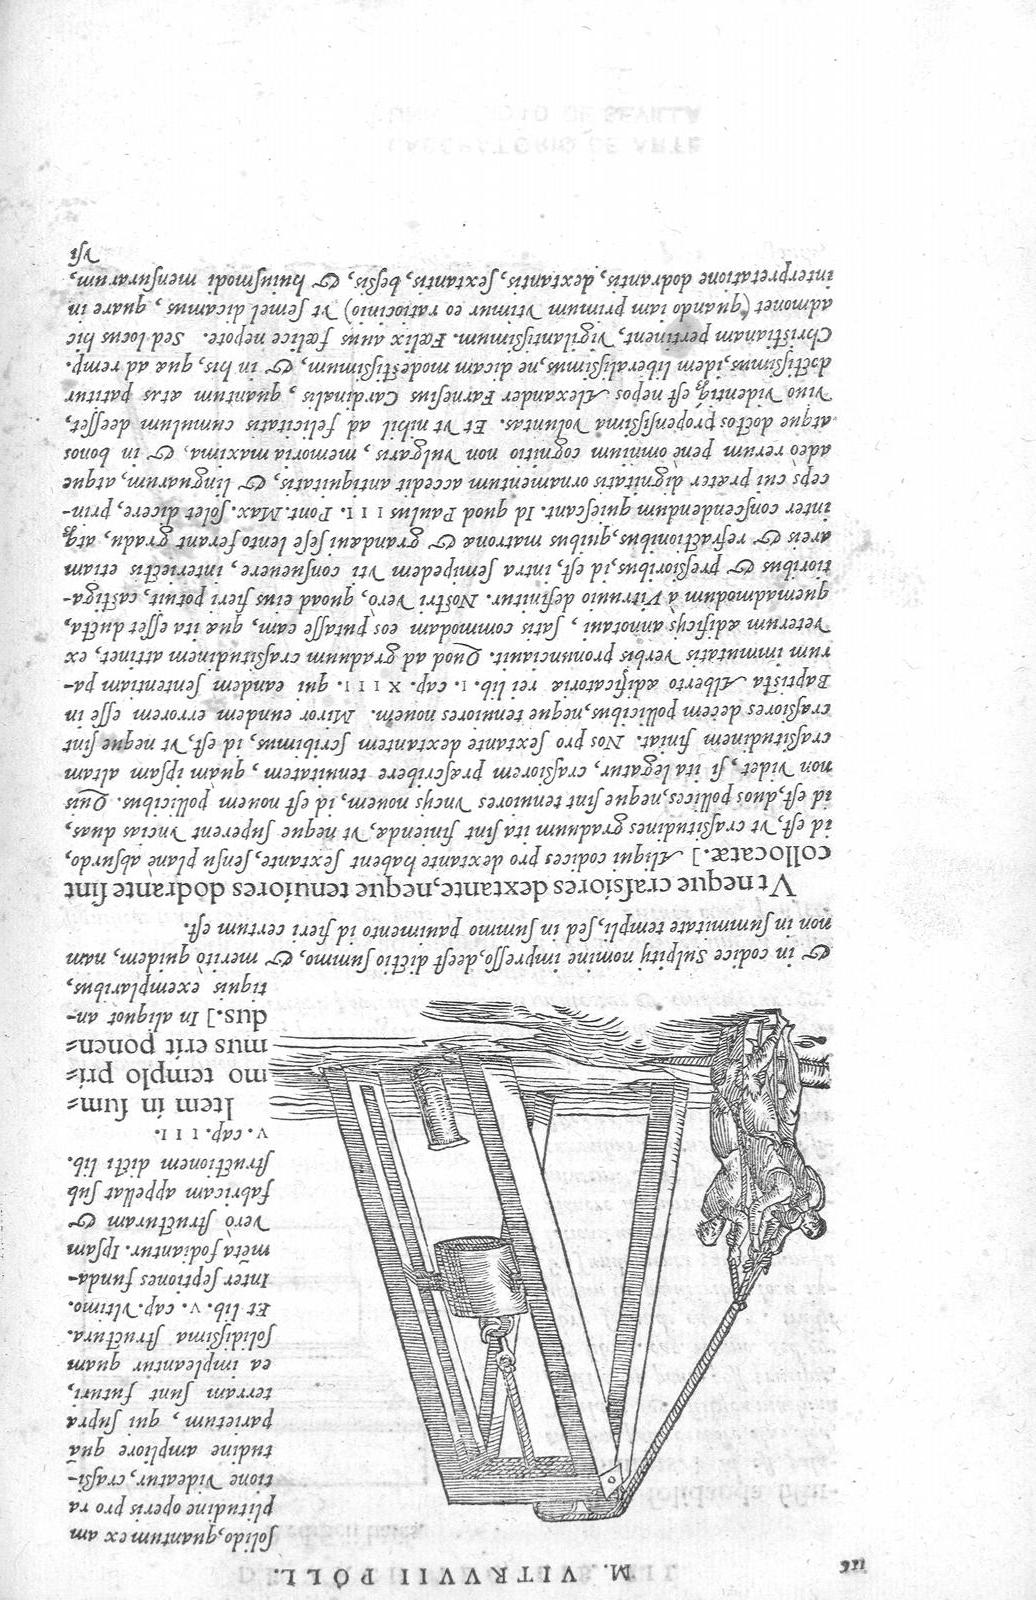 116
M. VITRVVII POLL.
solido, quantum ex am
plitudine operis pro ra
tione videatur, crassi-
tudine ampliore quā
parietum, qui supra
terram sunt futuri,
ea impleantur quam
solidissima structura.
Et lib. v. cap. vltimo.
Inter septiones funda-
mēta fodiantur. Ipsam
verò structuram &
fabricam appellat sub
structionem dicti lib.
v. cap. III.
Item in sum=
mo templo pri=
mus erit ponen=
dus.] In aliquot an-
tiquis exemplaribus,
& in codice Sulpitij nomine impresso, deest dictio summo, & meritò quidem, nam
non in summitate templi, sed in summo pauimento id fieri certum est.
Vt neque crassiores dextante, neque tenuiores dodrante sint
collocatæ.] Aliqui codices pro dextante habent sextante, sensu planè absurdo,
id est, vt crassitudines graduum ita sint finiendæ, vt neque superent vncias duas,
id est, duos pollices, neque sint tenuiores vncijs nouem, id est nouem pollicibus. Quis
non videt, si ita legatur, crassiorem præscribere tenuitatem, quàm ipsam altam
crassitudinem finiat. Nos pro sextante dextantem scribimus, id est, vt neque sint
crassiores decem pollicibus, neque tenuiores nouem. Miror eundem errorem esse in
Baptista Alberto ædificatoriæ rei lib. I. cap. XIII. qui eandem sententiam pa-
rum immutatis verbis pronunciauit. Quod ad graduum crassitudinem attinet, ex
veterum ædificijs annotaui, satis commodam eos putasse eam, quæ ita esset ducta,
quemadmodum à Vitruuio definitur. Nostri verò, quoad eius fieri potuit, castiga-
tioribus & pressioribus, id est, intra semipedem vti consueuere, interiectis etiam
areis & refractionibus, quibus matronæ & grandæui sese lento ferant gradu, atq́
inter conscendendum quiescant. Id quod Paulus III. Pont. Max. solet dicere, prin-
ceps cui præter dignitatis ornamentum accedit antiquitatis, & linguarum, atque
adeò rerum penè omnium cognitio non vulgaris, memoria maxima, & in bonos
atque doctos propensissima voluntas. Et vt nihil ad felicitatis cumulum deesset,
viuo videntiq́ est nepos Alexander Farnesius Cardinalis, quantum ætas patitur
doctissimus, idem liberalissimus, ne dicam modestissimum, & in his, quæ ad remp.
Christianam pertinent, vigilantissimum. Fœlix auus fœlice nepote. Sed locus hic
admonet (quando iam primum vtimur eo ratiocinio) vt semel dicamus, quare in
interpretatione dodrantis, dextantis, sextantis, bessis, & huiusmodi mensurarum,
vsi
LABORATORIO DE ARTE
DE SEVILLA